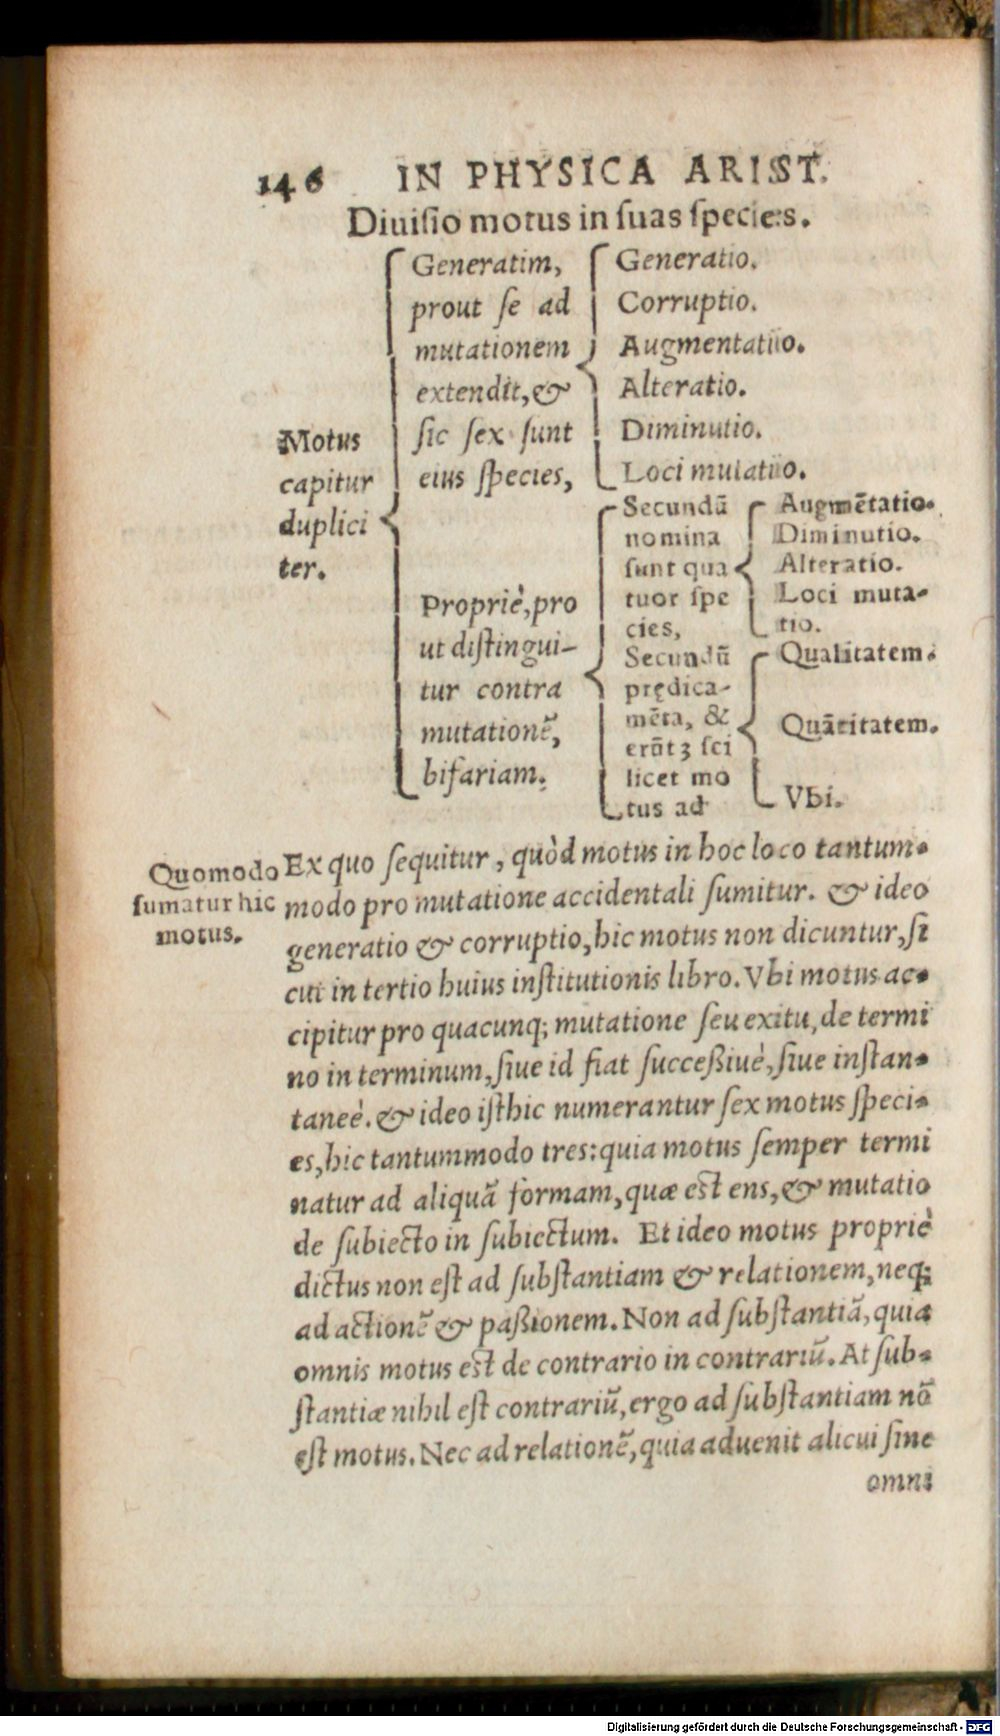 146 IN PHYSICA ARIST.
Diuisio motus in suas species.
Motus
capitur
duplici
ter.
Generatim,
prout se ad
mutationem
extendit, &
sic sex sunt
eius species,
Generatio.
Corruptio.
Augmentatio.
Alteratio.
Diminutio.
Loci mutatio.
Propriè, pro
ut distingui-
tur contra
mutationẽ,
bifariam.
Secundũ
nomina
sunt qua
tuor spe
cies,
Augmẽtatio.
Diminutio.
Alteratio.
Loci muta-
tio.
Secundũ
prędica-
mẽta, &
erũtꝫ sci
licet mo
tus ad
Qualitatem.
Quãtitatem.
Vbi.
Quomodo
sumatur hic
motus.
Ex quo sequitur, quòd motus in hoc loco tantum-
modo pro mutatione accidentali sumitur. & ideo
generatio & corruptio, hic motus non dicuntur, si
cut in tertio huius institutionis libro. Vbi motus ac-
cipitur pro quacunq; mutatione seu exitu, de termi
no in terminum, siue id fiat successiuè, siue instan-
taneè. & ideo isthic numerantur sex motus speci-
es, hic tantummodo tres: quia motus semper termi
natur ad aliquã formam, quæ est ens, & mutatio
de subiecto in subiectum. Et ideo motus propriè
dictus non est ad substantiam & relationem, neq;
ad actionẽ & passionem. Non ad substantiã, quia
omnis motus est de contrario in contrariũ. At sub-
stantiæ nihil est contrariũ, ergo ad substantiam nõ
est motus. Nec ad relationẽ, quia aduenit alicui sine
omni
Digitalisierung gefördert durch die Deutsche Forschungsgemeinschaft - DFG